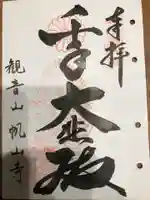 奉拝
千大悲殿
観音山帆山寺